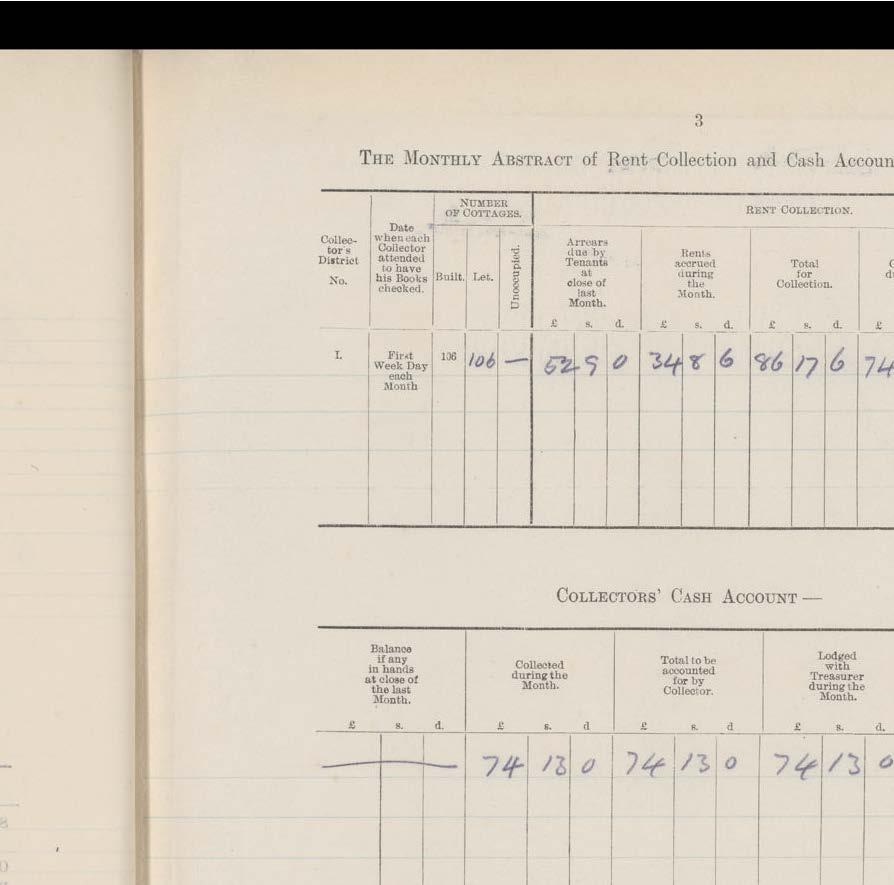 3
THE MONTHLY ABSTRACT of Rent Collection and Cash Accoun
Collec-
tor's
District
No.
Date
when each
Collector
attended
to have
his Books
checked.
NUMBER
OF COTTAGES.
Built. Let. Unoccupied.
RENT COLLECTION.
Arrears
due by
Tenants
at
close of
last
Month.
Rents
accrued
during
the
Month.
Total
for
Collection.
£ s. d. £ s. d. £ s. d. £
I. First
Week Day
each
Month
106 106 — 52 9 0 34 8 6 86 17 6 74
COLLECTORS' CASH ACCOUNT —
Balance
if any
in hands
at close of
the last
Month.
Collected
during the
Month.
Total to be
accounted
for by
Collector.
Lodged
with
Treasurer
during the
Month.
£ s. d. £ s. d £ s. d £ s. d.
— 74 13 0 74 13 0 74 13 0